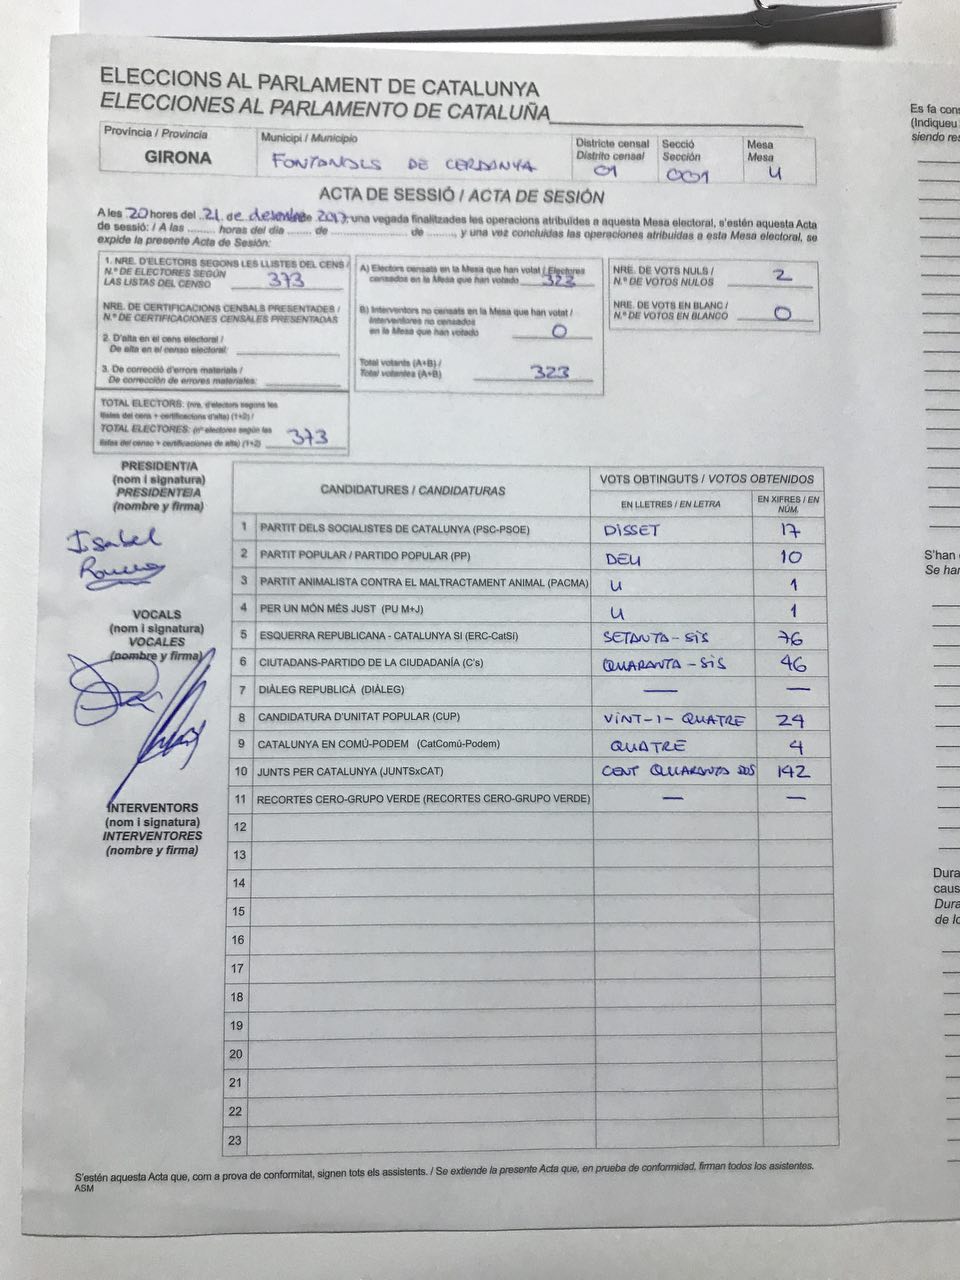 ELECCIONS AL PARLAMENT DE CATALUNYA
ELECCIONES AL PARLAMENTO DE CATALUÑA
Província / Provincia
GIRONA
Municipi / Municipio
FONTANALS DE CERDANYA
Districte censal
Distrito censal
01
Secció
Sección
001
Mesa
Mesa
U
ACTA DE SESSIÓ / ACTA DE SESIÓN
A les 20 hores del 21 de desembre de 2017, una vegada finalitzades les operacions atribuïdes a aquesta Mesa electoral, s'estén aquesta Acta
de sessió: / A las ......... horas del día ....... de ........................ de ........, y una vez concluidas las operaciones atribuidas a esta Mesa electoral, se
expide la presente Acta de Sesión:
1. NRE. D'ELECTORS SEGONS LES LLISTES DEL CENS /
N.º DE ELECTORES SEGÚN
LAS LISTAS DEL CENSO 373
NRE. DE CERTIFICACIONS CENSALS PRESENTADES /
N.º DE CERTIFICACIONES CENSALES PRESENTADAS
2. D'alta en el cens electoral /
De alta en el censo electoral:
3. De correcció d'errors materials /
De corrección de errores materiales:
TOTAL ELECTORS: (nre. d'electors segons les
llistes del cens + certificacions d'alta) (1+2) /
TOTAL ELECTORES: (nº electores según las
listas del censo + certificaciones de alta) (1+2) 373
A) Electors censats en la Mesa que han votat / Electores
censados en la Mesa que han votado 323
B) Interventors no censats en la Mesa que han votat /
Interventores no censados
en la Mesa que han votado 0
Total votants (A+B) /
Total votantes (A+B) 323
NRE. DE VOTS NULS /
N.º DE VOTOS NULOS 2
NRE. DE VOTS EN BLANC /
N.º DE VOTOS EN BLANCO 0
PRESIDENT/A
(nom i signatura)
PRESIDENTE/A
(nombre y firma)
Isabel
VOCALS
(nom i signatura)
VOCALES
(nombre y firma)
INTERVENTORS
(nom i signatura)
INTERVENTORES
(nombre y firma)
CANDIDATURES / CANDIDATURAS
VOTS OBTINGUTS / VOTOS OBTENIDOS
EN LLETRES / EN LETRA
EN XIFRES / EN
NÚM.
1 PARTIT DELS SOCIALISTES DE CATALUNYA (PSC-PSOE) DISSET 17
2 PARTIT POPULAR / PARTIDO POPULAR (PP) DEU 10
3 PARTIT ANIMALISTA CONTRA EL MALTRACTAMENT ANIMAL (PACMA) U 1
4 PER UN MÓN MÉS JUST (PU M+J) U 1
5 ESQUERRA REPUBLICANA - CATALUNYA SÍ (ERC-CatSí) SETANTA-SIS 76
6 CIUTADANS-PARTIDO DE LA CIUDADANÍA (C's) QUARANTA-SIS 46
7 DIÀLEG REPUBLICÀ (DIÀLEG) — —
8 CANDIDATURA D'UNITAT POPULAR (CUP) VINT-I-QUATRE 24
9 CATALUNYA EN COMÚ-PODEM (CatComú-Podem) QUATRE 4
10 JUNTS PER CATALUNYA (JUNTSxCAT) CENT QUARANTA DOS 142
11 RECORTES CERO-GRUPO VERDE (RECORTES CERO-GRUPO VERDE) — —
12
13
14
15
16
17
18
19
20
21
22
23
S'estén aquesta Acta que, com a prova de conformitat, signen tots els assistents. / Se extiende la presente Acta que, en prueba de conformidad, firman todos los asistentes.
ASM
Es fa
(Indiqueu
siendo
S'han
Se
Dura
caus
Dura
de